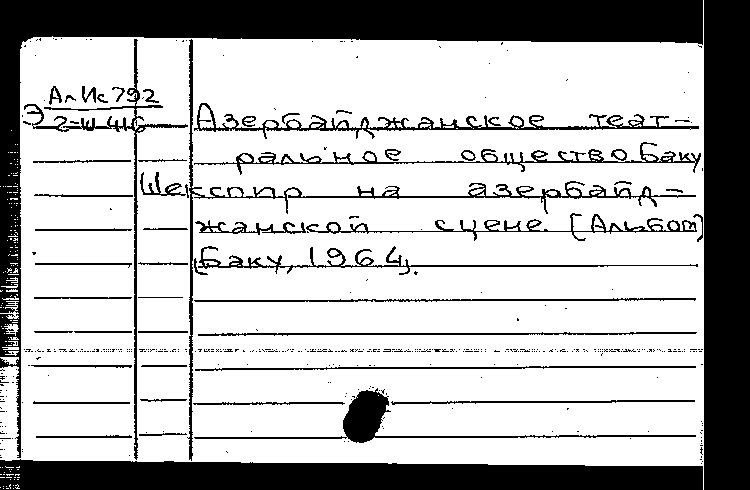 Ал Ис 792
Э 2-Ш 416
Азербайджанское теат-
ральное общество. Баку.
Шекспир на азербайд-
жанской сцене. [Альбом]
[Баку, 1964].